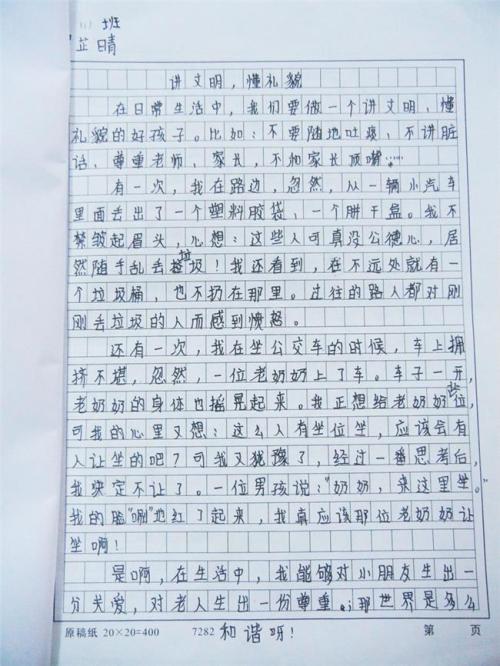 (1) 班
芷晴
讲文明，懂礼貌
在日常生活中，我们要做一个讲文明、懂
礼貌的好孩子。比如：不要随地吐痰、不讲脏
话、尊重老师、家长，不和家长顶嘴……
有一次，我在路边，忽然，从一辆小汽车
里面丢出了一个塑料胶袋、一个饼干盒。我不
禁皱起眉头，心想：这些人可真没公德心，居
然随手乱丢垃圾！我还看到，在不远处就有一
个垃圾桶，也不扔在那里。过往的路人都对刚
刚丢垃圾的人而感到愤怒。
还有一次，我在坐公交车的时候，车上拥
挤不堪，忽然，一位老奶奶上了车。车子一开，
老奶奶的身体也摇晃起来。我正想给老奶奶让位，
可我的心里又想：这么人有坐位坐，应该会有
人让坐的吧？可我又犹豫了，经过一番思考后，
我决定不让了。一位男孩说："奶奶，来这里坐。"
我的脸"唰"地红了起来，我真应该那位老奶奶让
坐啊！
是啊，在生活中，我能够对小朋友生出一
份关爱，对老人生出一份尊重，那世界是多么
和谐呀！
原稿纸 20×20=400 7282 第 页